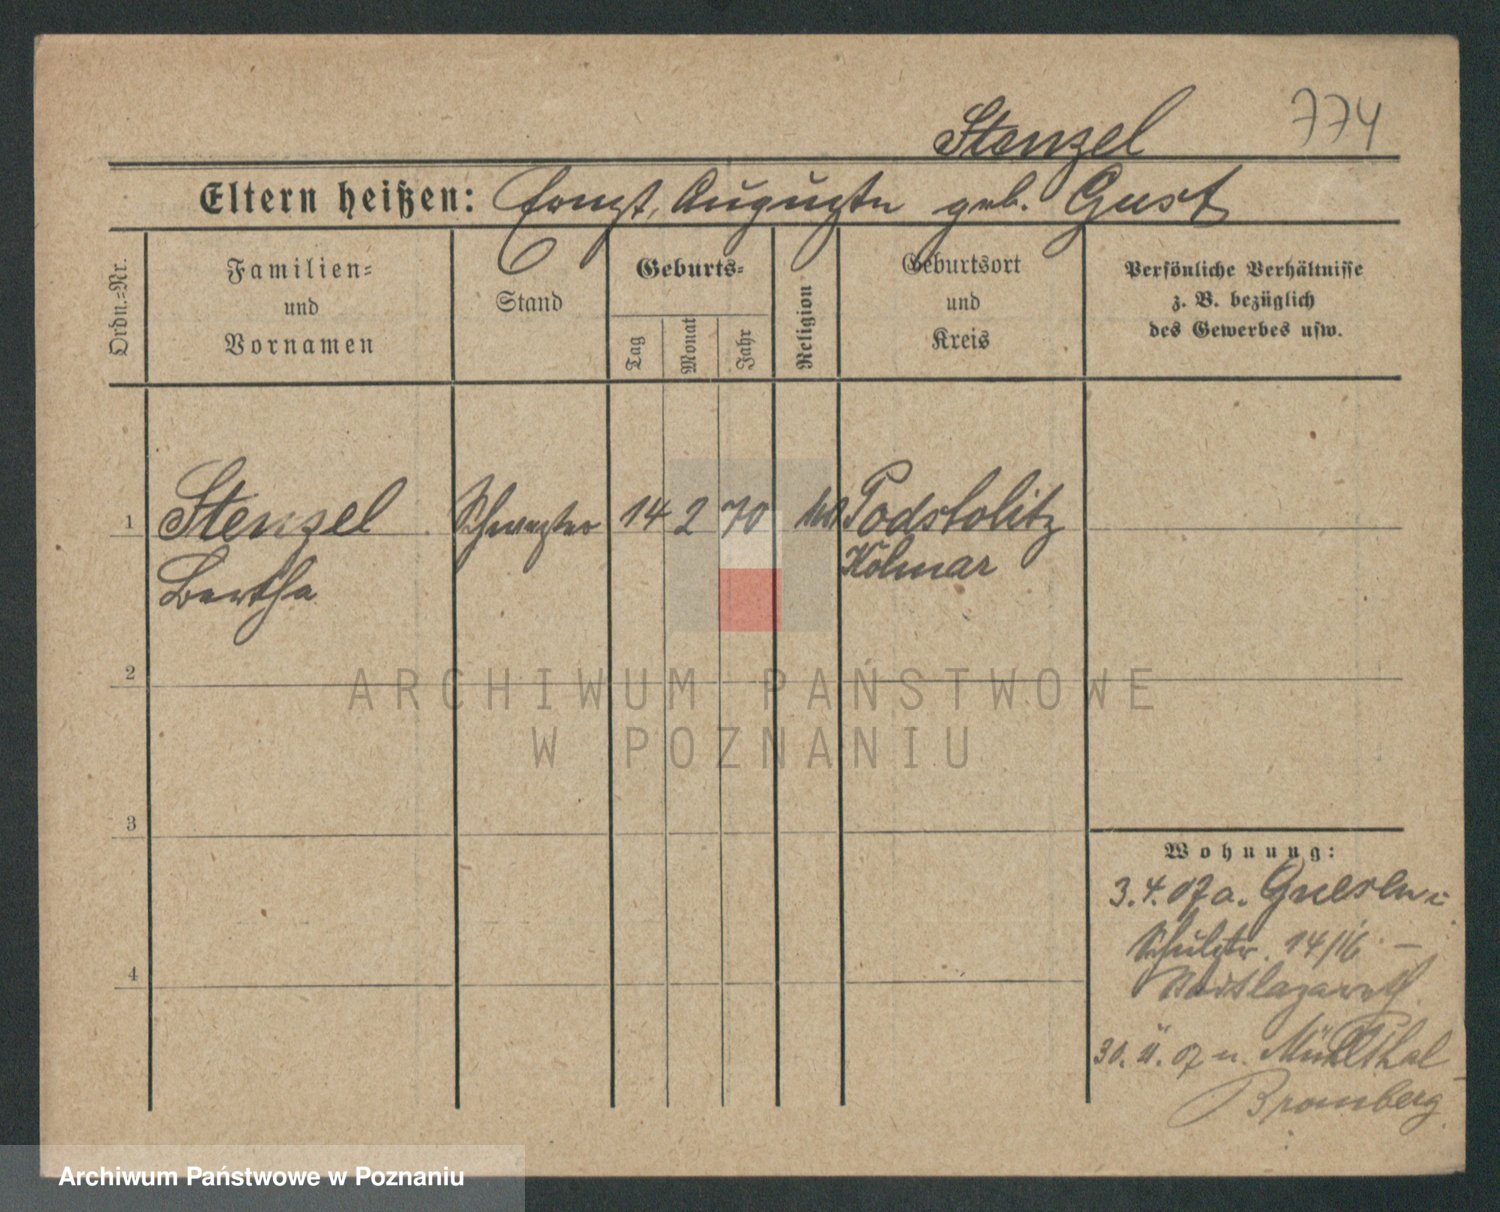 Stenzel 774
Eltern heißen: Ernst, Auguste geb. Gust
Ordn.=Nr.
Familien=
und
Vornamen
Stand
Geburts=
Tag
Monat
Jahr
Religion
Geburtsort
und
Kreis
Persönliche Verhältnisse
z. B. bezüglich
des Gewerbes usw.
1 Stenzel Schwester 14 2 70 Podstolitz
Bertha Kolmar
2
3
4
Wohnung:
3.4.07 a. Gnesen
Schulstr. 14/16 –
Stadtlazareth
30. 4. 07 n. Mühlthal
Bromberg
ARCHIWUM PAŃSTWOWE
W POZNANIU
Archiwum Państwowe w Poznaniu